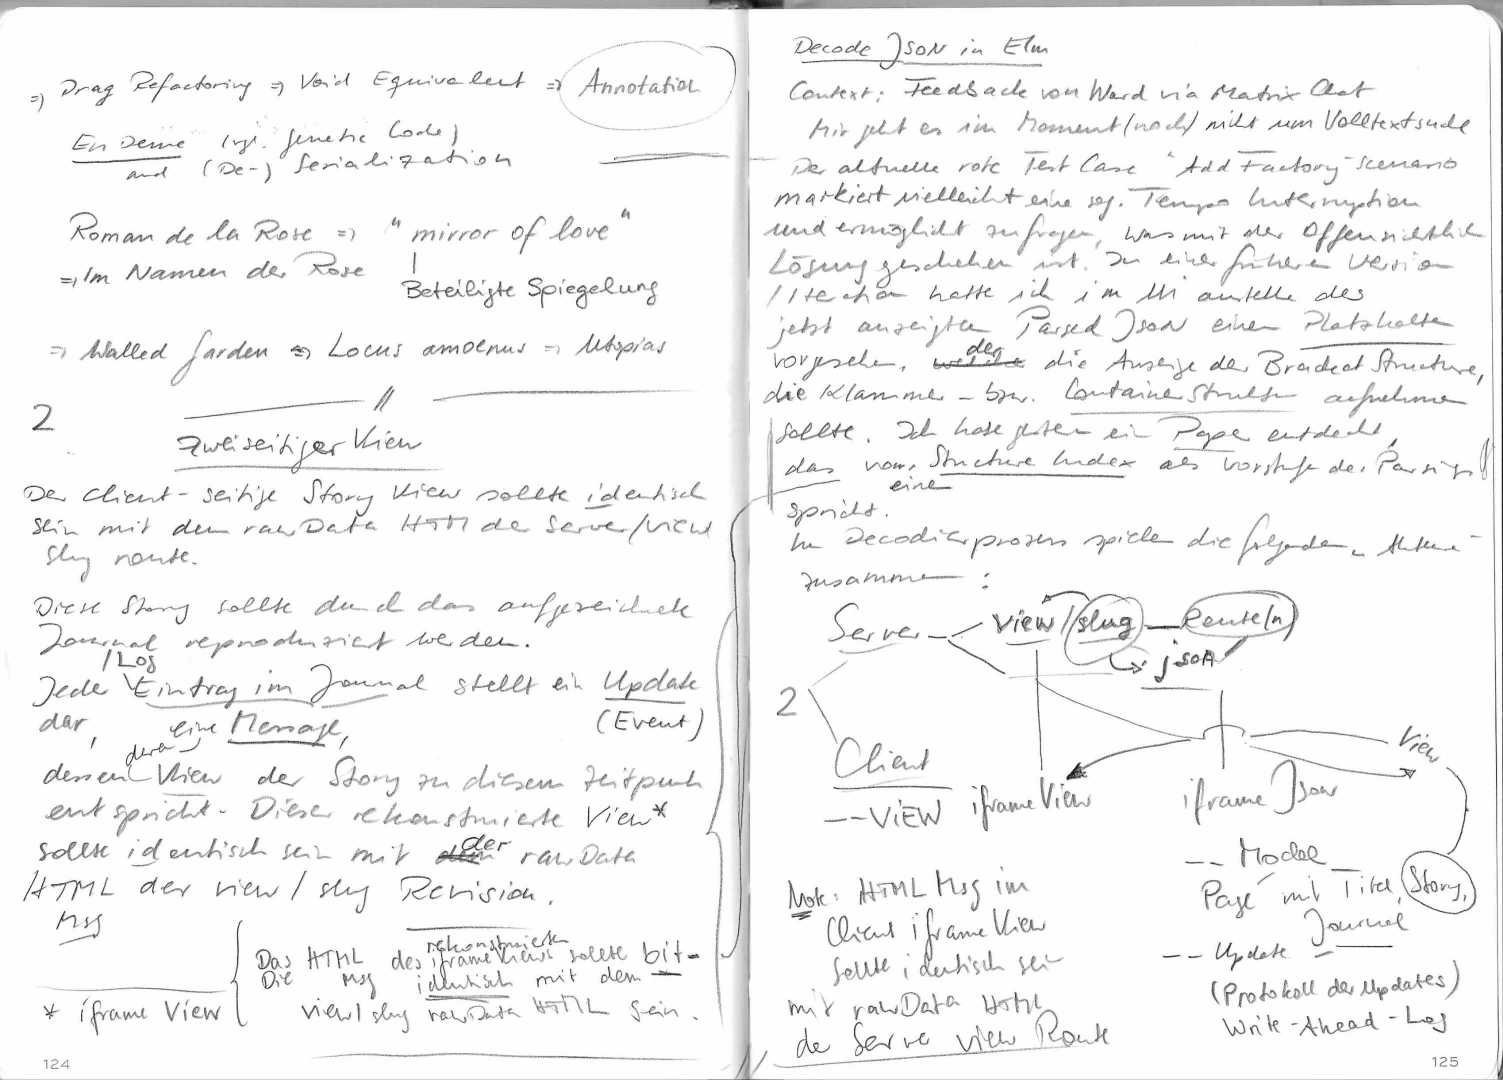 => Drag Refactoring => Void Equivalent => Annotation
En Deme (vgl. Genetic Code)
and (De-) Serialization
Roman de la Rose => "mirror of love"
=> Im Namen der Rose
Beteiligte Spiegelung
=> Walled Garden <=> Locus amoenus => Utopias
//
2
Zweiseitiger View
Der Client-seitige Story View sollte identisch
sein mit dem rawData HTML der Server/view
slug route.
Diese Story sollte durch das aufgezeichnete
Journal reproduziert werden.
/Log
Jeder Eintrag im Journal stellt ein Update
dar, eine Message, (Event)
deren
dessen View der Story zu diesem Zeitpunkt
entspricht. Dieser rekonstruierte View*
sollte identisch sein mit der rawData
HTML der view/slug Revision.
Msg
rekonstruierten
Das HTML des iframe Views sollte bit-
Die Msg identisch mit dem
* iframe View
view/slug rawData HTML sein.
124
Decode JSON in Elm
Context: Feedback von Ward via Matrix Chat
Mir geht es im Moment (noch) nicht um Volltextsuche
Der aktuelle rote Test Case "Add Factory"-scenario
markiert vielleicht eine sog. Tempo Interruption
und ermöglicht zu fragen, was mit der Offensichtlichen
Lösung geschehen ist. In einer früheren Version
/Iteration hatte ich im UI anstelle des
jetzt anzeigten Parsed JSON einen Platzhalter
vorgesehen, der die Anzeige der Bracket Structure,
die Klammer- bzw. Containerstruktur aufnehmen
sollte. Ich habe gestern ein Paper entdeckt,
das von Structure Index als Vorstufe des Parsings
einem
spricht.
Im Decodierprozess spielen die folgenden "Akteure"
zusammen:
Server — view/slug — Route(n)
json
2
Client
View
-- VIEW iframe View
iframe JSON
-- Model
Page mit Titel, Story,
Journal
-- Update
(Protokoll der Updates)
Write-Ahead-Log
Note: HTML Msg im
Client iframe View
sollte identisch sein
mit rawData HTML
der Server view Route
125